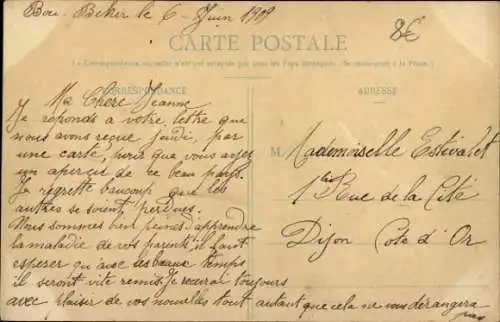 Bou-Beker le 6 Juin 1909
8€
CARTE POSTALE
La Correspondance au recto n'est pas acceptée par tous les Pays étrangers (Se renseigner à la Poste.)
CORRESPONDANCE
Ma Chere Jeanne
Je reponds a votre lettre que
nous avons reçue jeudi, par
une carte, voir que vous ayez
un aperçu de ce beau pays.
Je regrette beaucoup que les
autres se soient perdues.
Nous sommes bien peines d'apprendre
la maladie de vos parents il faut
esperer qu'avec les beaux temps
il seront vite remis. Je recevrai toujours
avec plaisir de vos nouvelles tout autant que cela ne vous dérangera
pas
ADRESSE
M. Mademoiselle Estivalet
1 Rue de la Cité
Dijon Cote d'Or